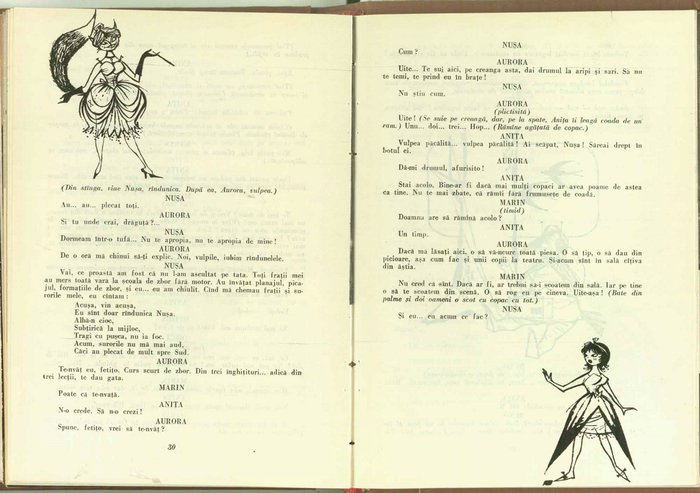 (Din stînga, vine Nușa, rîndunica. După ea, Aurora, vulpea.)
NUȘA
Au... au... plecat toți.
AURORA
Și tu unde erai, drăguță?...
NUȘA
Dormeam într-o tufă... Nu te apropia, nu te apropia de mine!
AURORA
De o oră mă chinui să-ți explic. Noi, vulpile, iubim rîndunelele.
NUȘA
Vai, ce proastă am fost că nu l-am ascultat pe tata. Toți frații mei
au mers toată vara la școala de zbor fără motor. Au învățat planajul, pica-
jul, formațiile de zbor, și eu... eu am chiulit. Cînd mă chemau frații și su-
rorile mele, eu cîntam:
Acușa, vin acușa,
Eu sînt doar rîndunica Nușa.
Albă-n cioc,
Subțirică la mijloc,
Tragi cu pușca, nu ia foc.
Acum, surorile nu mă mai aud,
Căci au plecat de mult spre Sud.
AURORA
Te-nvăț eu, fetițo. Curs scurt de zbor. Din trei înghițituri... adică din
trei lecții, te dau gata.
MARIN
Poate că te-nvață.
ANITA
N-o crede. Să n-o crezi!
AURORA
Spune, fetițo, vrei să te-nvăț?
30
NUȘA
Cum?
AURORA
Uite... Te sui aici, pe creanga asta, dai drumul la aripi și sari. Să nu
te temi, te prind eu în brațe!
NUȘA
Nu știu cum.
AURORA
(plictisită)
Uite! (Se suie pe creangă, dar, pe la spate, Anița îi leagă coada de un
ram.) Unu... doi... trei... Hop... (Rămîne agățată de copac.)
ANITA
Vulpea păcălită... vulpea păcălită! Ai scăpat, Nușa! Săreai drept în
botul ei.
AURORA
Dă-mi drumul, afurisito!
ANITA
Stai acolo. Bine-ar fi dacă mai mulți copaci ar avea poame de astea
ca tine. Nu te mai zbate, că rămîi fără frumusețe de coadă.
MARIN
(timid)
Doamna are să rămînă acolo?
ANITA
Un timp.
AURORA
Dacă mă lăsați aici, o să vă-ncurc toată piesa. O să țip, o să dau din
picioare, așa cum fac și unii copii la teatru. Și-acum sînt în sală cîțiva
din ăștia.
MARIN
Nu cred că sînt. Dacă ar fi, ar trebui să-i scoatem din sală. Iar pe tine
o să te scoatem din scenă. O să rog eu pe cineva. Uite-așa! (Bate din
palme și doi oameni o scot cu copac cu tot.)
NUȘA
Și eu... eu acum ce fac?